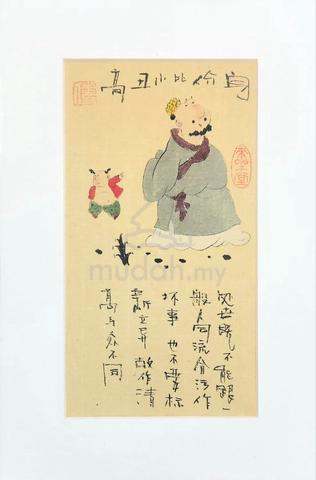 自比小丑高
处世既不能跟一
般人同流合污作
坏事 也不要标
新立异 故作清
高与众不同
mudah.my